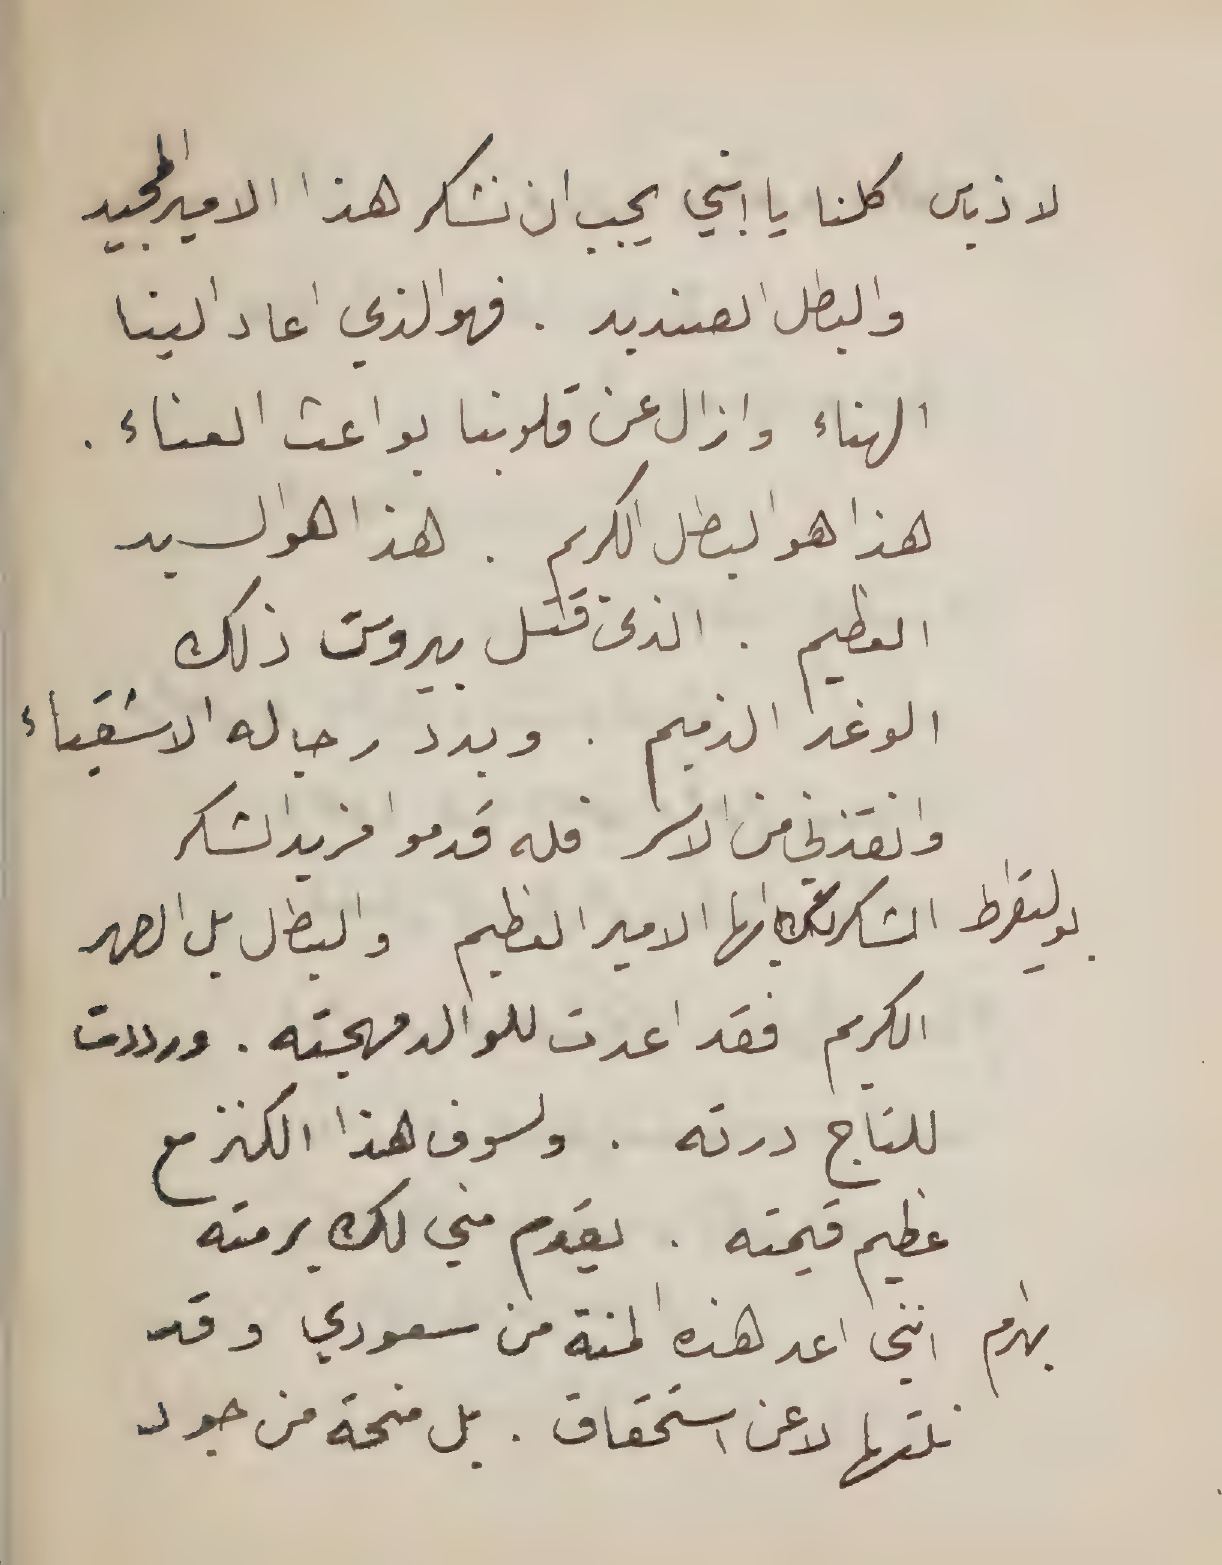 لاذياس كلنا يا ابنتي يجب ان نشكر هذا الامير المجيد
والبطل الصنديد . فهو الذي اعاد الينا
الهناء وازال عن قلوبنا بواعث العناء .
هذا هو البطل الكريم . هذا هو السيد
العظيم . الذي قتل بيروت ذلك
الوغد الذميم . وبدد رجاله الاشقياء
وانقذني من الاسر فله قدموا مزيد الشكر
بوليقراط الشكر لك ايها الامير العظيم والبطل بل الصهر
الكريم فقد اعدت للوالد مهجته . ورددت
للتاج درته . ولسوف هذا الكنز مع
عظيم قيمته . يقدم مني لك برمته
بهرام انني اعد هذه المنة من سعودي وقد
نلتها لا عن استحقاق . بل منحة من جود